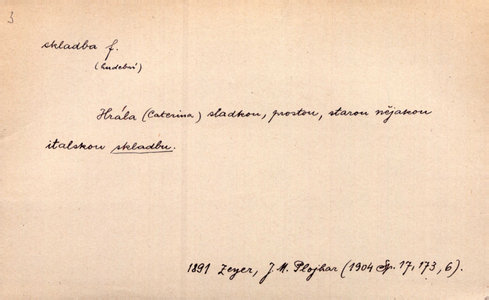 3
skladba f.
(hudební)
Hrála (Caterina) sladkou, prostou, starou nějakou
italskou skladbu.
1891 Zeyer, J. M. Plojhar (1904 Sp. 17, 173, 6).